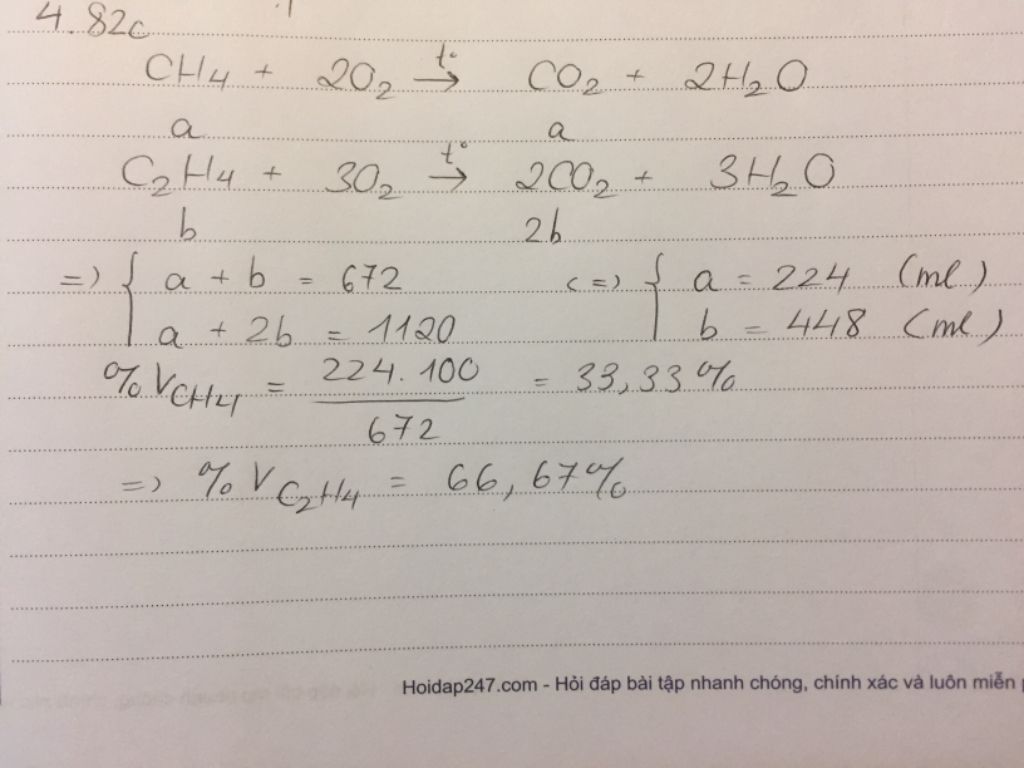 4.82c
CH4 + 2O2 t° → CO2 + 2H2O
a a
C2H4 + 3O2 t° → 2CO2 + 3H2O
b 2b
=) { a + b = 672 <=) { a = 224 (ml)
a + 2b = 1120 b = 448 (ml)
%VCH4 = 224.100 / 672 = 33,33%
=> %VC2H4 = 66,67%
Hoidap247.com - Hỏi đáp bài tập nhanh chóng, chính xác và luôn miễn